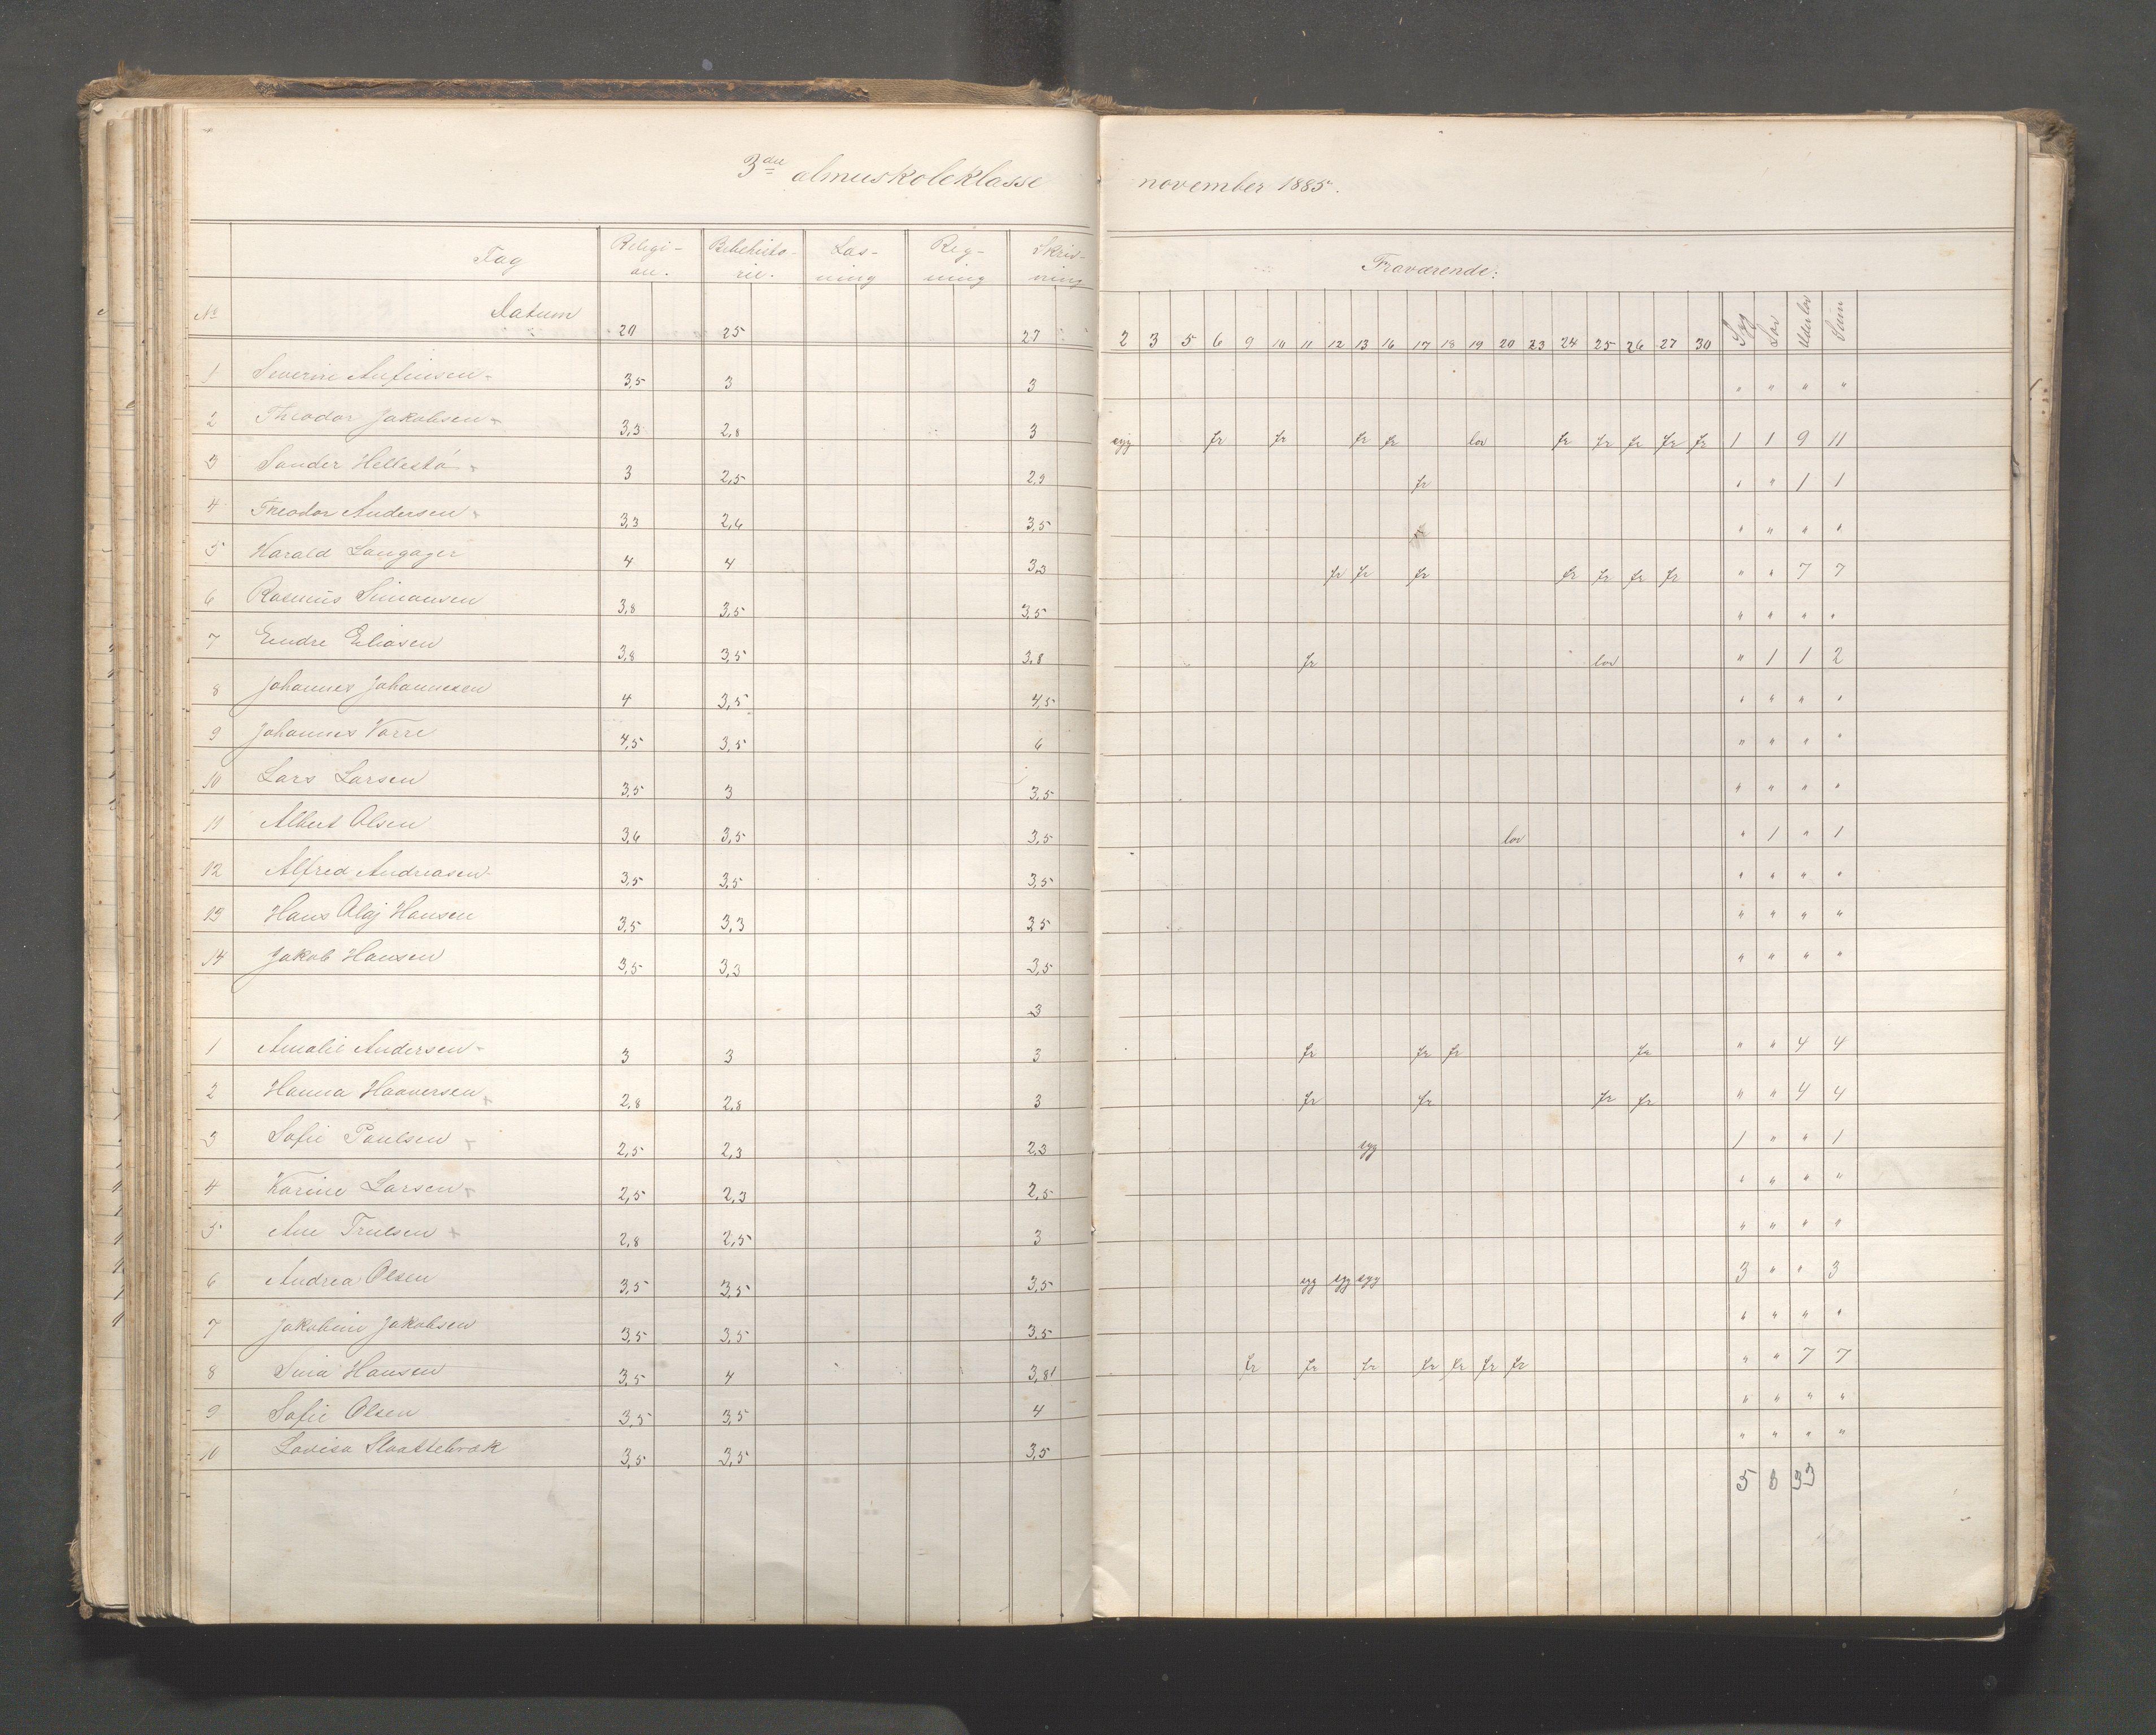 3die almueskoleklasse november 1885.
Fag Religi- Bibelhisto- Læs- Reg- Skriv- Fraværende:
on. rie. ning ning ning
No Datum 20 25 27 2 3 5 6 9 10 11 12 13 16 17 18 19 20 23 24 25 26 27 30 Syg Lov Uden lov Sum
1 Severin Anfinsen 3,5 3 3 " " " "
2 Theodor Jakobsen 3,3 2,8 3 syg fr fr fr fr lov fr fr fr fr fr 1 1 9 11
3 Sander Hellestö 3 2,5 2,9 fr " " 1 1
4 Theodor Andersen 3,3 2,6 3,5 " " " "
5 Harald Langager 4 4 3,3 fr fr fr fr fr fr fr " " 7 7
6 Rasmus Simonsen 3,8 3,5 3,5 " " " "
7 Endre Eliasen 3,8 3,5 3,8 fr lov " 1 1 2
8 Johannes Johannesen 4 3,5 4,5 " " " "
9 Johannes Varre 4,5 3,5 6 " " " "
10 Lars Larsen 3,5 3 3,5 " " " "
11 Albert Olsen 3,6 3,5 3,5 lov " 1 " 1
12 Alfred Andreasen 3,5 3,5 3,5 " " " "
13 Hans Olaj Hansen 3,5 3,3 3,5 " " " "
14 Jakob Hansen 3,5 3,3 3,5 " " " "
3
1 Amalie Andersen 3 3 3 fr fr fr fr " " 4 4
2 Hanna Haaversen 2,8 2,8 3 fr fr fr fr " " 4 4
3 Sofie Paulsen 2,5 2,3 2,3 syg 1 " " 1
4 Karine Larsen 2,5 2,3 2,5 " " " "
5 Ane Trulsen 2,8 2,5 3 " " " "
6 Andrea Olsen 3,5 3,5 3,5 syg syg syg 3 " " 3
7 Jakobine Jakobsen 3,5 3,5 3,5 " " " "
8 Sina Hansen 3,5 4 3,8 fr fr fr fr fr fr fr " " 7 7
9 Sofie Olsen 3,5 3,5 4 " " " "
10 Lovisa Slaattebræk 3,5 3,5 3,5 " " " "
5 3 33